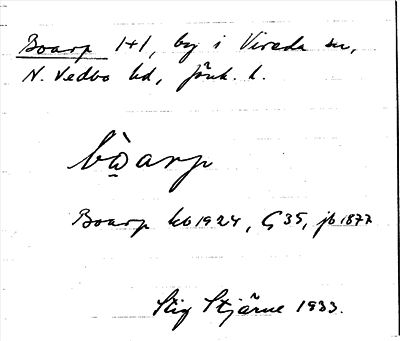 Boarp 1+1, by i Vireda sn,
N. Vedbo hd, Jönk. l.
bò̲arp
Boarp kb 1924, G 35, jb 1877
Stig Stjärne 1933.